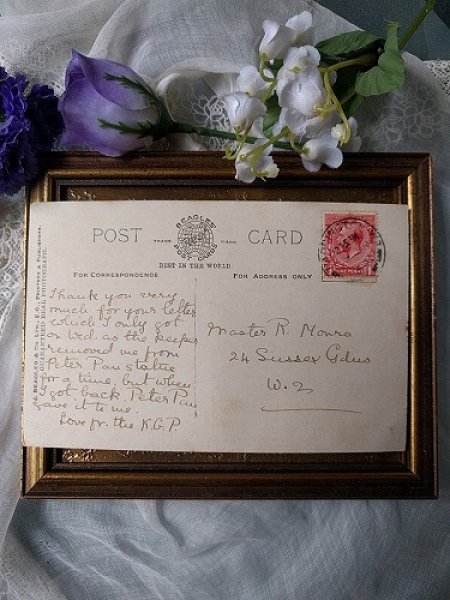 POST CARD
BEAGLES
TRADE MARK
POST CARDS
BEST IN THE WORLD
FOR CORRESPONDENCE
FOR ADDRESS ONLY
J. BEAGLES & Co. LTD., E.C., PRINTERS & PUBLISHERS.
GUARANTEED REAL PHOTOGRAPHIC.
ONE PENNY
Thank you very
much for your letter
which I only got
on Wed. as the keeper
removed me from
Peter Pan statue
for a time, but when
I got back Peter Pan
gave it to me.
Love fr. the K.G.P.
Master R. Monro
24 Sussex Gdns
W.2